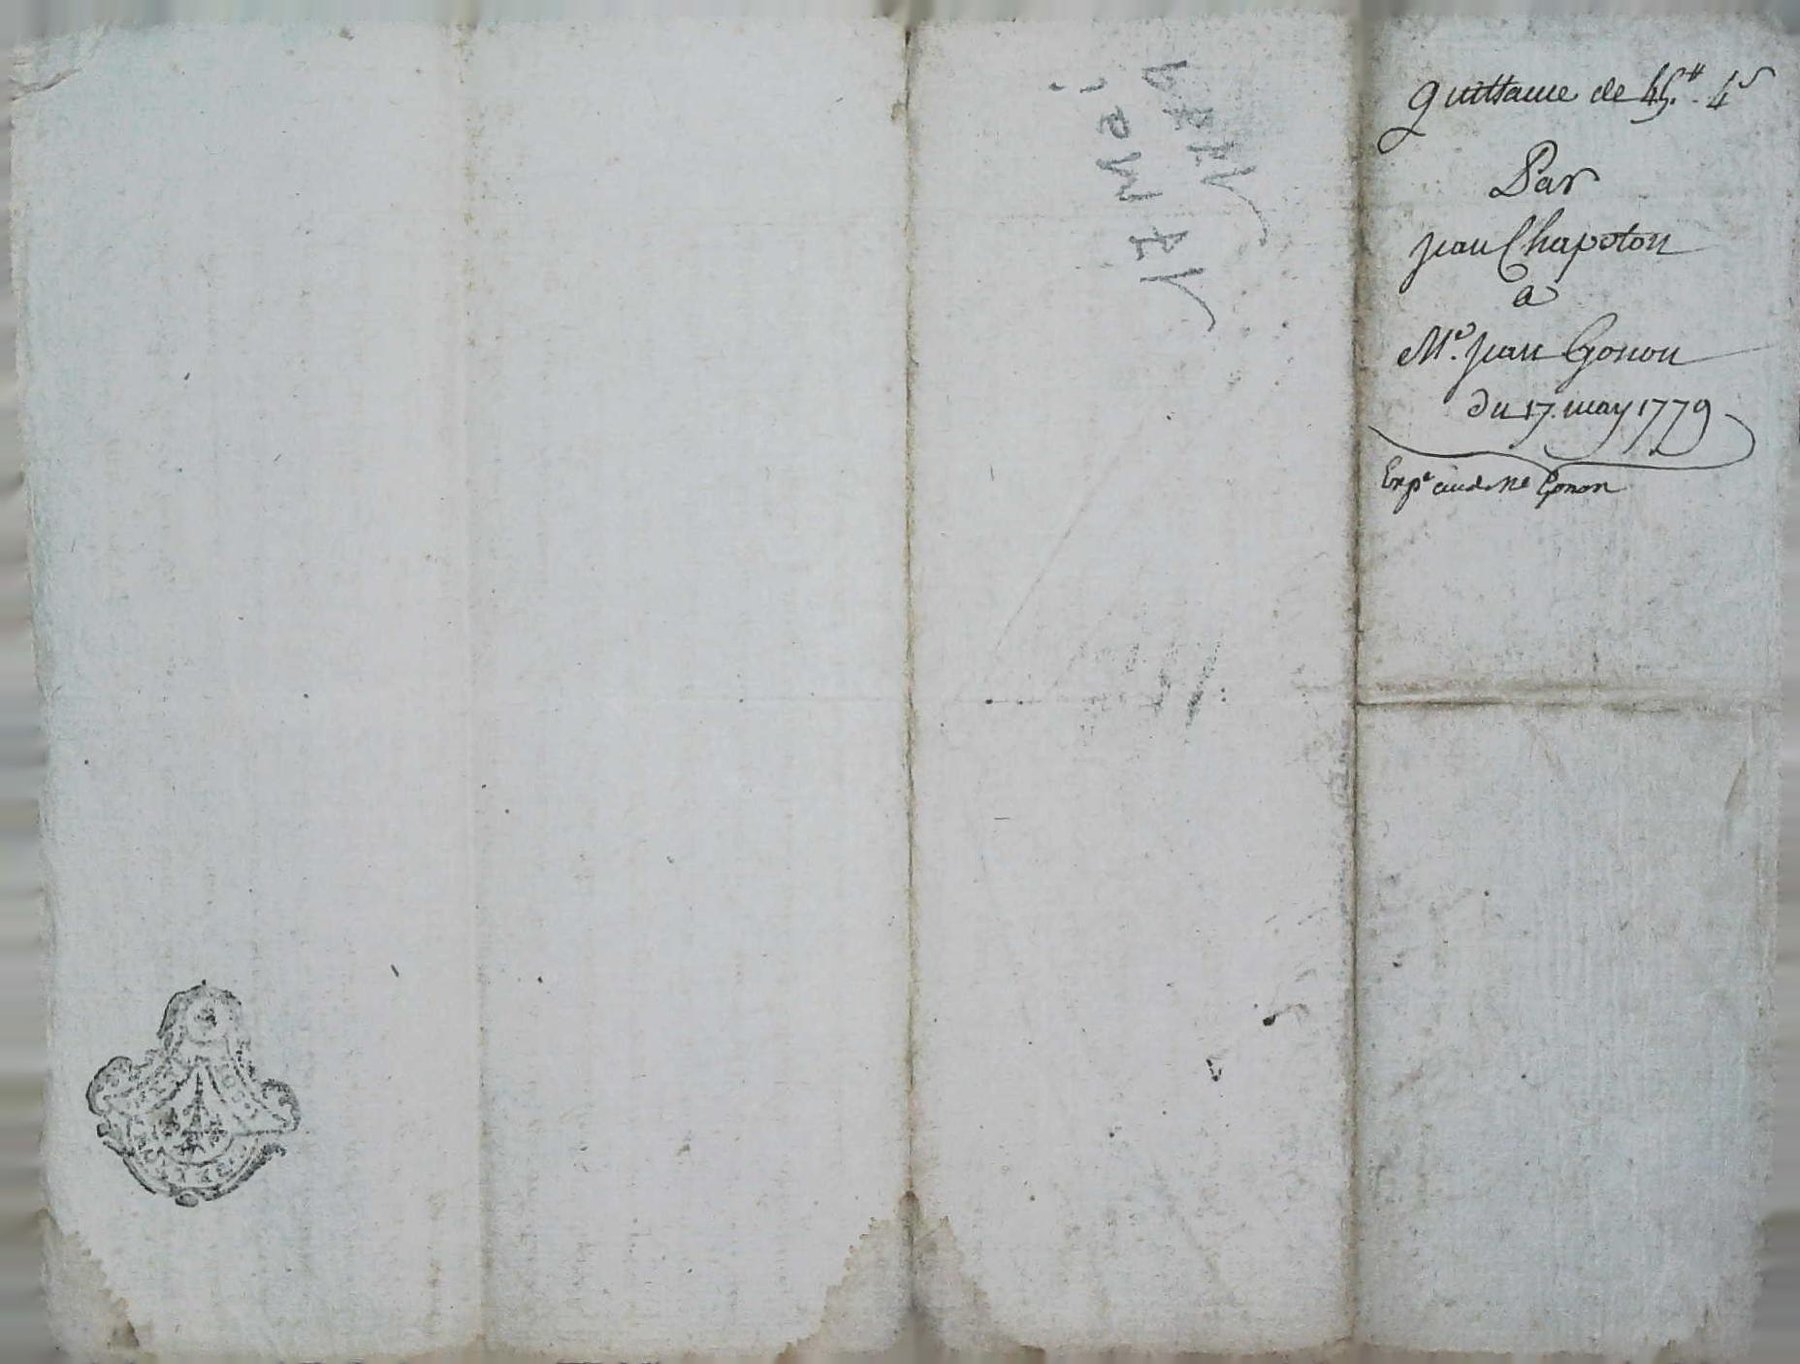 quittance de 45.# 4s
Par
jean Chapoton
a
Me. jean Gonon
du 17. may 1779
Expe aud Me Gonon
17 Mai
1779